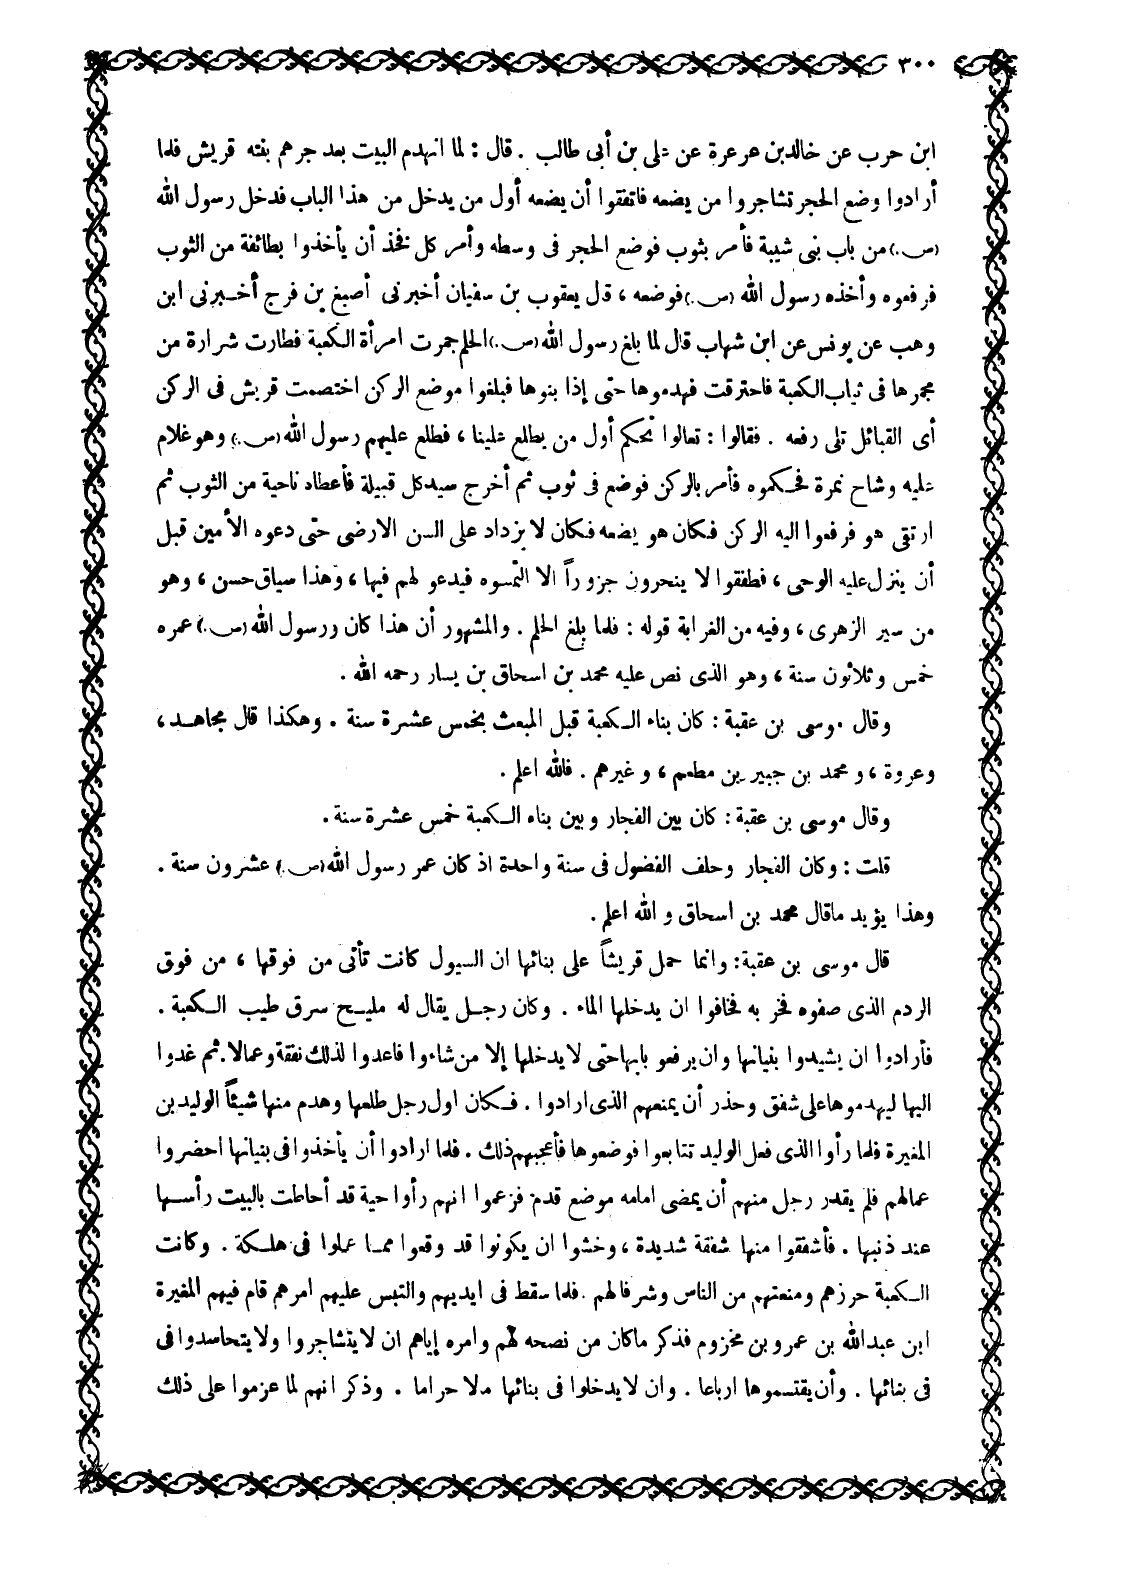 ٣٠٠
ابن حرب عن خالد بن عرعرة عن على بن أبى طالب . قال : لما انهدم البيت بعد جرهم بنته قريش فلما
أرادوا وضع الحجر تشاجروا من يضعه فاتفقوا أن يضعه أول من يدخل من هذا الباب فدخل رسول الله
(ص.) من باب بنى شيبة فأمر بثوب فوضع الحجر فى وسطه وأمر كل فخذ أن يأخذوا بطائفة من الثوب
فرفعوه وأخذه رسول الله (ص.) فوضعه ، قال يعقوب بن سفيان أخبرنى أصبغ بن فرج أخبرنى ابن
وهب عن يونس عن ابن شهاب قال لما بلغ رسول الله (ص.) الحلم جمرت امرأة الكعبة فطارت شرارة من
مجمرها فى ثياب الكعبة فاحترقت فهدموها حتى إذا بنوها فبلغوا موضع الركن اختصمت قريش فى الركن
أى القبائل تلى رفعه . فقالوا : تعالوا نحكم أول من يطلع علينا ، فطلع عليهم رسول الله (ص.) وهو غلام
عليه وشاح نمرة فحكموه فأمر بالركن فوضع فى ثوب ثم أخرج سيد كل قبيلة فأعطاه ناحية من الثوب ثم
ارتقى هو فرفعوا اليه الركن فكان هو يضعه فكان لا يزداد على السن الارضى حتى دعوه الأمين قبل
أن ينزل عليه الوحى ، فطفقوا لا ينحرون جزوراً الا التمسوه فيدعو لهم فيها ، وهذا سياق حسن ، وهو
من سير الزهرى ، وفيه من الغرابة قوله : فلما بلغ الحلم . والمشهور أن هذا كان ورسول الله (ص.) عمره
خمس وثلاثون سنة ، وهو الذى نص عليه محمد بن اسحاق بن يسار رحمه الله .
وقال موسى بن عقبة : كان بناء الكعبة قبل المبعث بخمس عشرة سنة . وهكذا قال مجاهد ،
وعروة ، و محمد بن جبير بن مطعم ، و غيرهم . فالله اعلم .
وقال موسى بن عقبة : كان بين الفجار وبين بناء الكعبة خمس عشرة سنة .
قلت : وكان الفجار وحلف الفضول فى سنة واحدة اذ كان عمر رسول الله (ص.) عشرون سنة .
وهذا يؤيد ماقال محمد بن اسحاق و الله اعلم .
قال موسى بن عقبة : وانما حمل قريشاً على بنائها ان السيول كانت تأتى من فوقها ، من فوق
الردم الذى صفوه فخر به فخافوا ان يدخلها الماء . وكان رجل يقال له مليح سرق طيب الكعبة .
فأرادوا ان يشيدوا بنيانها وان يرفعو بابها حتى لا يدخلها إلا من شاءوا فاعدوا لذلك نفقة وعمالا . ثم غدوا
اليها ليهدموها على شفق وحذر أن يمنعهم الذى ارادوا . فكان اول رجل طلعها وهدم منها شيئاً الوليد بن
المغيرة فلما رأوا الذى فعل الوليد تتابعوا فوضعوها فأعجبهم ذلك . فلما ارادوا أن يأخذوا فى بنيانها احضروا
عمالهم فلم يقدر رجل منهم أن يمضى امامه موضع قدم فزعموا انهم رأوا حية قد أحاطت بالبيت رأسها
عند ذنبها . فأشفقوا منها شفقة شديدة ، وخشوا ان يكونوا قد وقعوا مما عملوا فى هلكة . وكانت
الكعبة حرزهم ومنعتهم من الناس وشرفا لهم . فلما سقط فى ايديهم والتبس عليهم امرهم قام فيهم المغيرة
ابن عبدالله بن عمرو بن مخزوم فذكر ماكان من نصحه لهم وامره إياهم ان لا يتشاجروا ولا يتحاسدوا فى
فى بنائها . وأن يقتسموها ارباعا . وان لا يدخلوا فى بنائها مالا حراما . وذكر انهم لما عزموا على ذلك